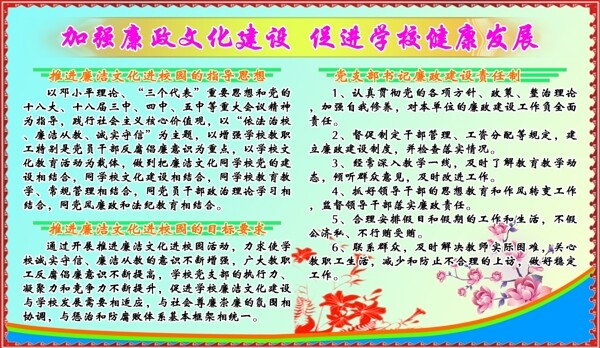 加强廉政文化建设 促进学校健康发展
推进廉洁文化进校园的指导思想
以邓小平理论、“三个代表”重要思想和党的
十八大、十八届三中、四中、五中等重大会议精神
为指导，践行社会主义核心价值观，以“依法治校
、廉洁从教、诚实守信”为主题，以增强学校教职
工特别是党员干部反腐倡廉意识为重点，以学校文
化教育活动为载体，做到把廉洁文化同学校党的建
设相结合，同学校文化建设相结合，同学校教育教
学、常规管理相结合，同党员干部政治理论学习相
结合，同党风廉政和法纪教育相结合。
推进廉洁文化进校园的目标要求
通过开展推进廉洁文化进校园活动，力求使学
校诚实守信、廉洁从教的意识不断增强，广大教职
工反腐倡廉意识不断提高，学校党支部的执行力、
凝聚力和竞争力不断提升，促进学校廉洁文化建设
与学校发展需要相适应，与社会尊廉崇廉的氛围相
协调，与惩治和防腐败体系基本框架相统一。
党支部书记廉政建设责任制
1、认真贯彻党的各项方针、政策、整治理论
，加强自我修养，对本单位的廉政建设工作负全面
责任。
2、督促制定干部管理、工资分配等规定，建
立廉政建设制度，并检查落实情况。
3、经常深入教学一线，及时了解教育教学动
态，倾听群众意见，及时改进工作。
4、抓好领导干部的思想教育和作风转变工作
，监督领导干部落实廉政责任。
5、合理安排假日和假期的工作和生活，不假
公济私、不行贿受贿。
6、联系群众，及时解决教师实际困难，关心
教职工生活，减少和防止不合理的上访，做好稳定
工作。